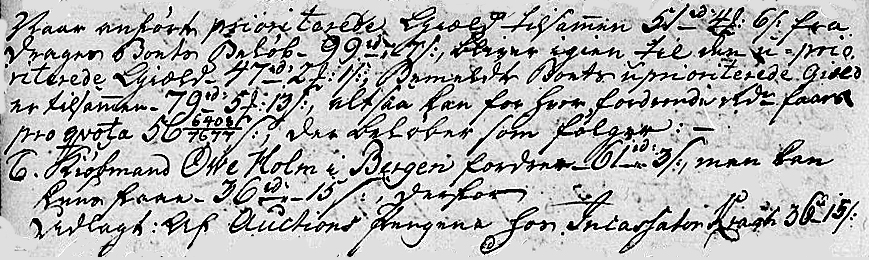 Naar anførte prioriterede Gield tilsammen 51 rd 4 ß: 6 s: fra
drages Boets Beløb 99 rd " 7 s:, bliver igien til den u-prio,
riterede Gield 47 rd: 2 ß: 1 s:, Bemeldte Boets uprioriterede Gield
er tilsammen 79 rd: 5 ß: 13 s:, altsaa kan for hver fordrende rdr. faaes
pro qvota 56 6408/7677 s:, der beløber som følger: —
6. Kiøbmand Owe Holm i Bergen fordrer 61 rd " 3 s:, men kan
kuns faae 36 rd " 15 s:, derfor
Udlagt: Af Auctions Pengene hos Incassator Kragh 36 rd " 15 s: